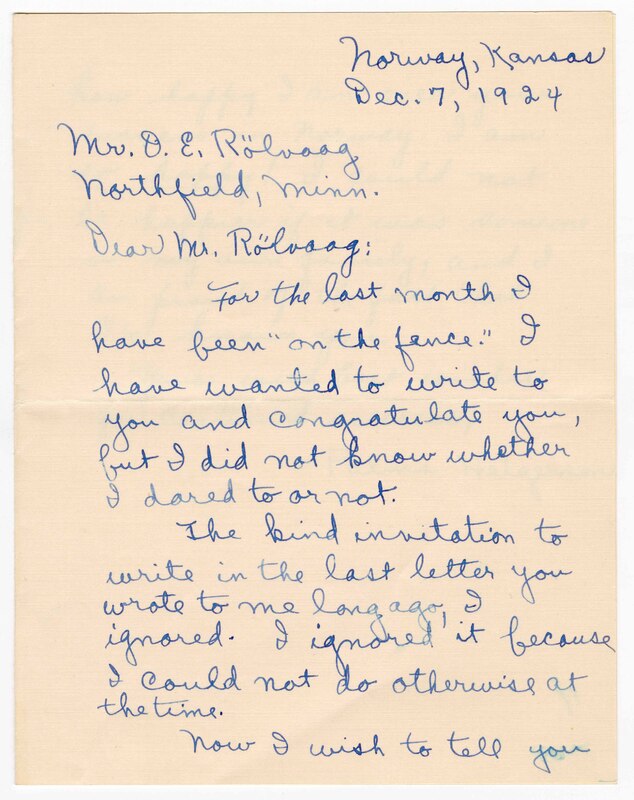 Norway, Kansas
Dec. 7, 1924
Mr. O. E. Rölvaag
Northfield, Minn.
Dear Mr. Rölvaag:
For the last month I
have been "on the fence." I
have wanted to write to
you and congratulate you,
but I did not know whether
I dared to or not.
The kind invitation to
write in the last letter you
wrote to me long ago, I
ignored. I ignored it because
I could not do otherwise at
the time.
Now I wish to tell you